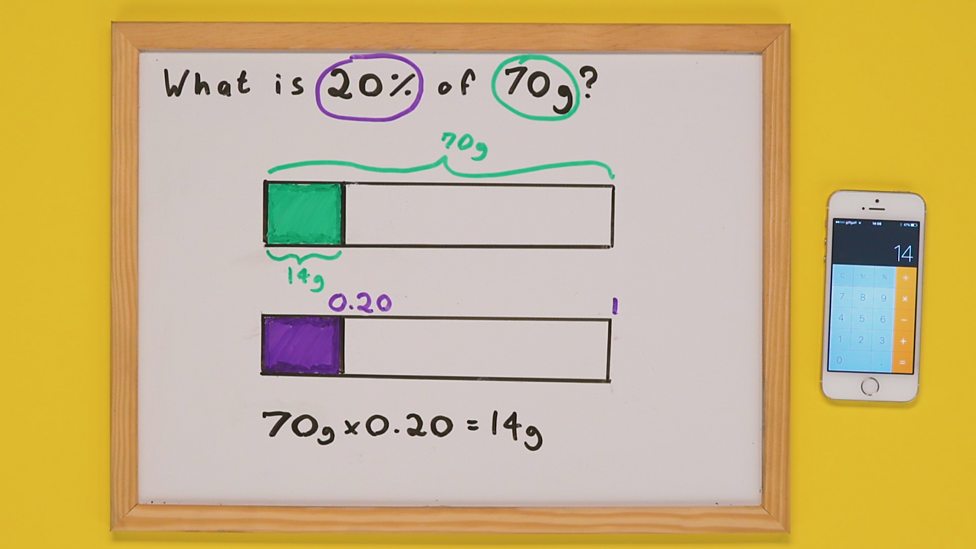 What is 20% of 70g?
70g
14g
0.20 1
70g × 0.20 = 14g
14
7 8 9
4 5 6
1 2 3
0